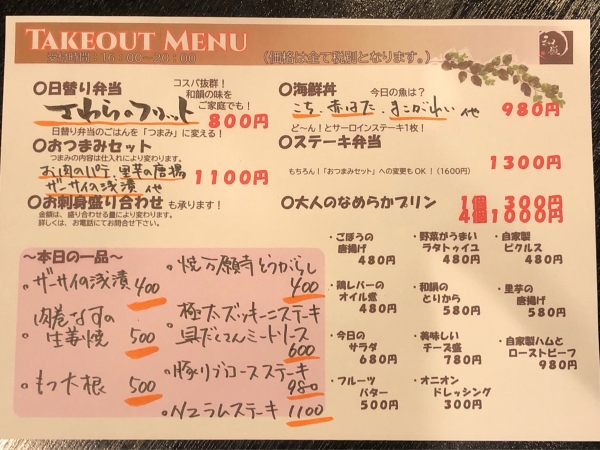 TAKEOUT MENU
受付時間：16：00～20：00
(価格は全て税別となります。)
〇日替り弁当
コスパ抜群！
和韻の味を
ご家庭でも！
さわらのフリット
800円
日替り弁当のごはんを「つまみ」に変える！
〇おつまみセット
つまみの内容は仕入れにより変わります。
里芋の唐揚
ザーサイの浅漬 他
1100円
〇お刺身盛り合わせ も承ります！
金額は、盛り合わせる量により変わります。
詳しくは、お電話にてお問合せ下さい。
〇海鮮丼
今日の魚は？
こち、赤はた、まこがれい 他
980円
ど～ん！とサーロインステーキ1枚！
〇ステーキ弁当
1300円
もちろん！「おつまみセット」への変更もOK！(1600円)
〇大人のなめらかプリン
1個 300円
4個1000円
～本日の一品～
・ザーサイの浅漬 400
・肉巻なすの
生姜焼 500
・もつ大根 500
・焼万願寺とうがらし
400
・極太ズッキーニステーキ
具だくさんミートソース
600
・豚リブロースステーキ
980
・NZラムステーキ 1100
・ごぼうの
唐揚げ
480円
・野菜がうまい
ラタトゥイユ
480円
・自家製
ピクルス
480円
・鶏レバーの
オイル煮
480円
・和韻の
とりから
580円
・里芋の
唐揚げ
580円
・今日の
サラダ
680円
・美味しい
チーズ盛
780円
・自家製ハムと
ローストビーフ
980円
・フルーツ
バター
500円
・オニオン
ドレッシング
300円